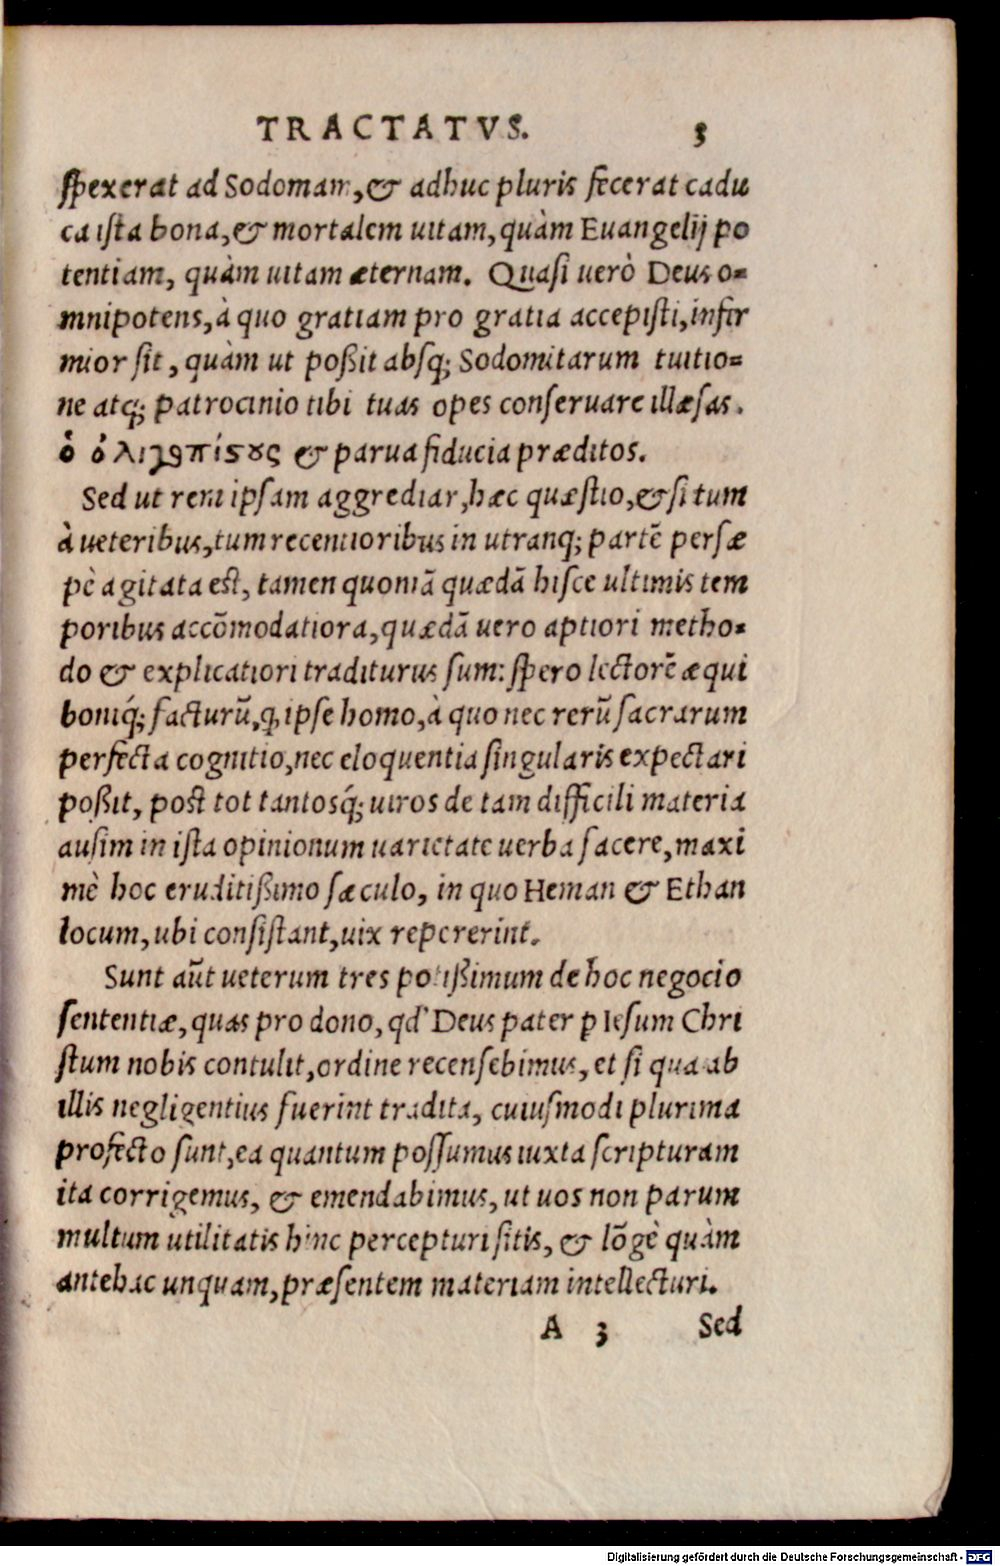 TRACTATVS. 5
ſpexerat ad Sodomam, & adhuc pluris fecerat cadu
ca iſta bona, & mortalem uitam, quàm Euangelij po
tentiam, quàm uitam æternam. Quaſi uerò Deus o=
mnipotens, à quo gratiam pro gratia accepiſti, infir
mior ſit, quàm ut poßit abſq; Sodomitarum tuitio=
ne atq; patrocinio tibi tuas opes conſeruare illæſas.
ὁ ὀλιγοπίςους & parua fiducia præditos.
Sed ut rem ipſam aggrediar, hæc quæſtio, & ſi tum
à ueteribus, tum recentioribus in utranq; partē perſæ
pè agitata eſt, tamen quoniā quædā hiſce ultimis tem
poribus accōmodatiora, quædā uero aptiori metho=
do & explicatiori traditurus ſum: ſpero lectorē æqui
boniq́; facturū, ꝙ ipſe homo, à quo nec rerū ſacrarum
perfecta cognitio, nec eloquentia ſingularis expectari
poßit, poſt tot tantosq́; uiros de tam difficili materia
auſim in iſta opinionum uarietate uerba facere, maxi
mè hoc eruditißimo ſæculo, in quo Heman & Ethan
locum, ubi conſiſtant, uix repererint.
Sunt aūt ueterum tres potißimum de hoc negocio
ſententiæ, quas pro dono, qd' Deus pater ꝑ Ieſum Chri
ſtum nobis contulit, ordine recenſebimus, et ſi qua ab
illis negligentius fuerint tradita, cuiuſmodi plurima
profecto ſunt, ea quantum poſſumus iuxta ſcripturam
ita corrigemus, & emendabimus, ut uos non parum
multum utilitatis hinc percepturi ſitis, & lōgè quàm
antehac unquam, præſentem materiam intellecturi.
A 3 Sed
Digitalisierung gefördert durch die Deutsche Forschungsgemeinschaft - DFG